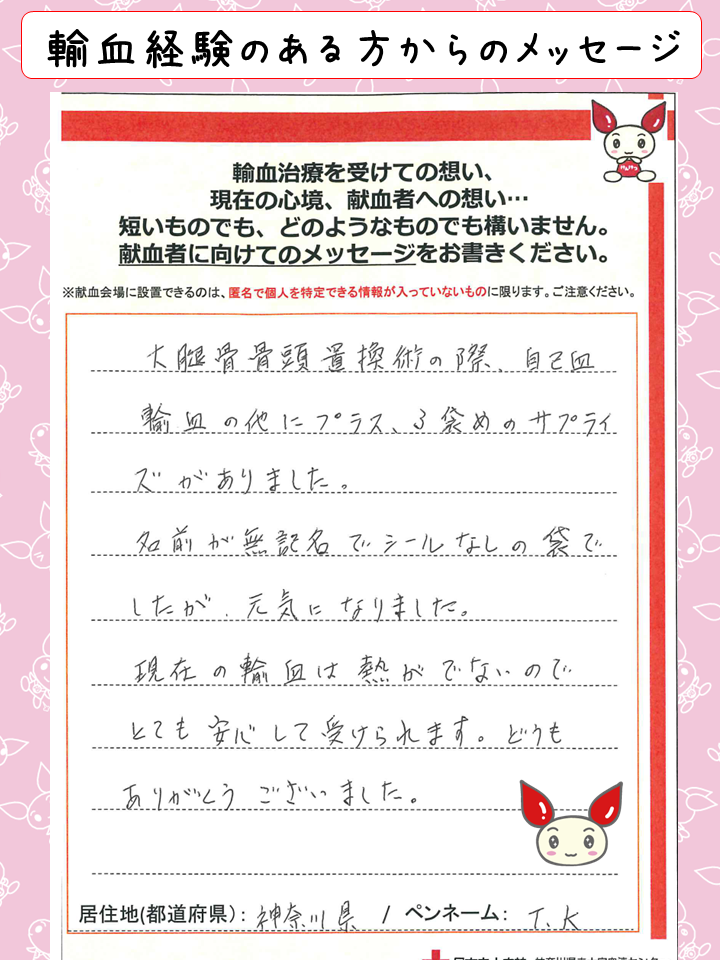 輸血経験のある方からのメッセージ
けんけつ
輸血治療を受けての想い、
現在の心境、献血者への想い…
短いものでも、どのようなものでも構いません。
献血者に向けてのメッセージをお書きください。
※献血会場に設置できるのは、匿名で個人を特定できる情報が入っていないものに限ります。ご注意ください。
大腿骨骨頭置換術の際、自己血
輸血の他にプラス、3袋めのサプライ
ズがありました。
名前が無記名でシールなしの袋で
したが、元気になりました。
現在の輸血は熱がでないので
とても安心して受けられます。どうも
ありがとうございました。
居住地(都道府県): 神奈川県 / ペンネーム: T.K